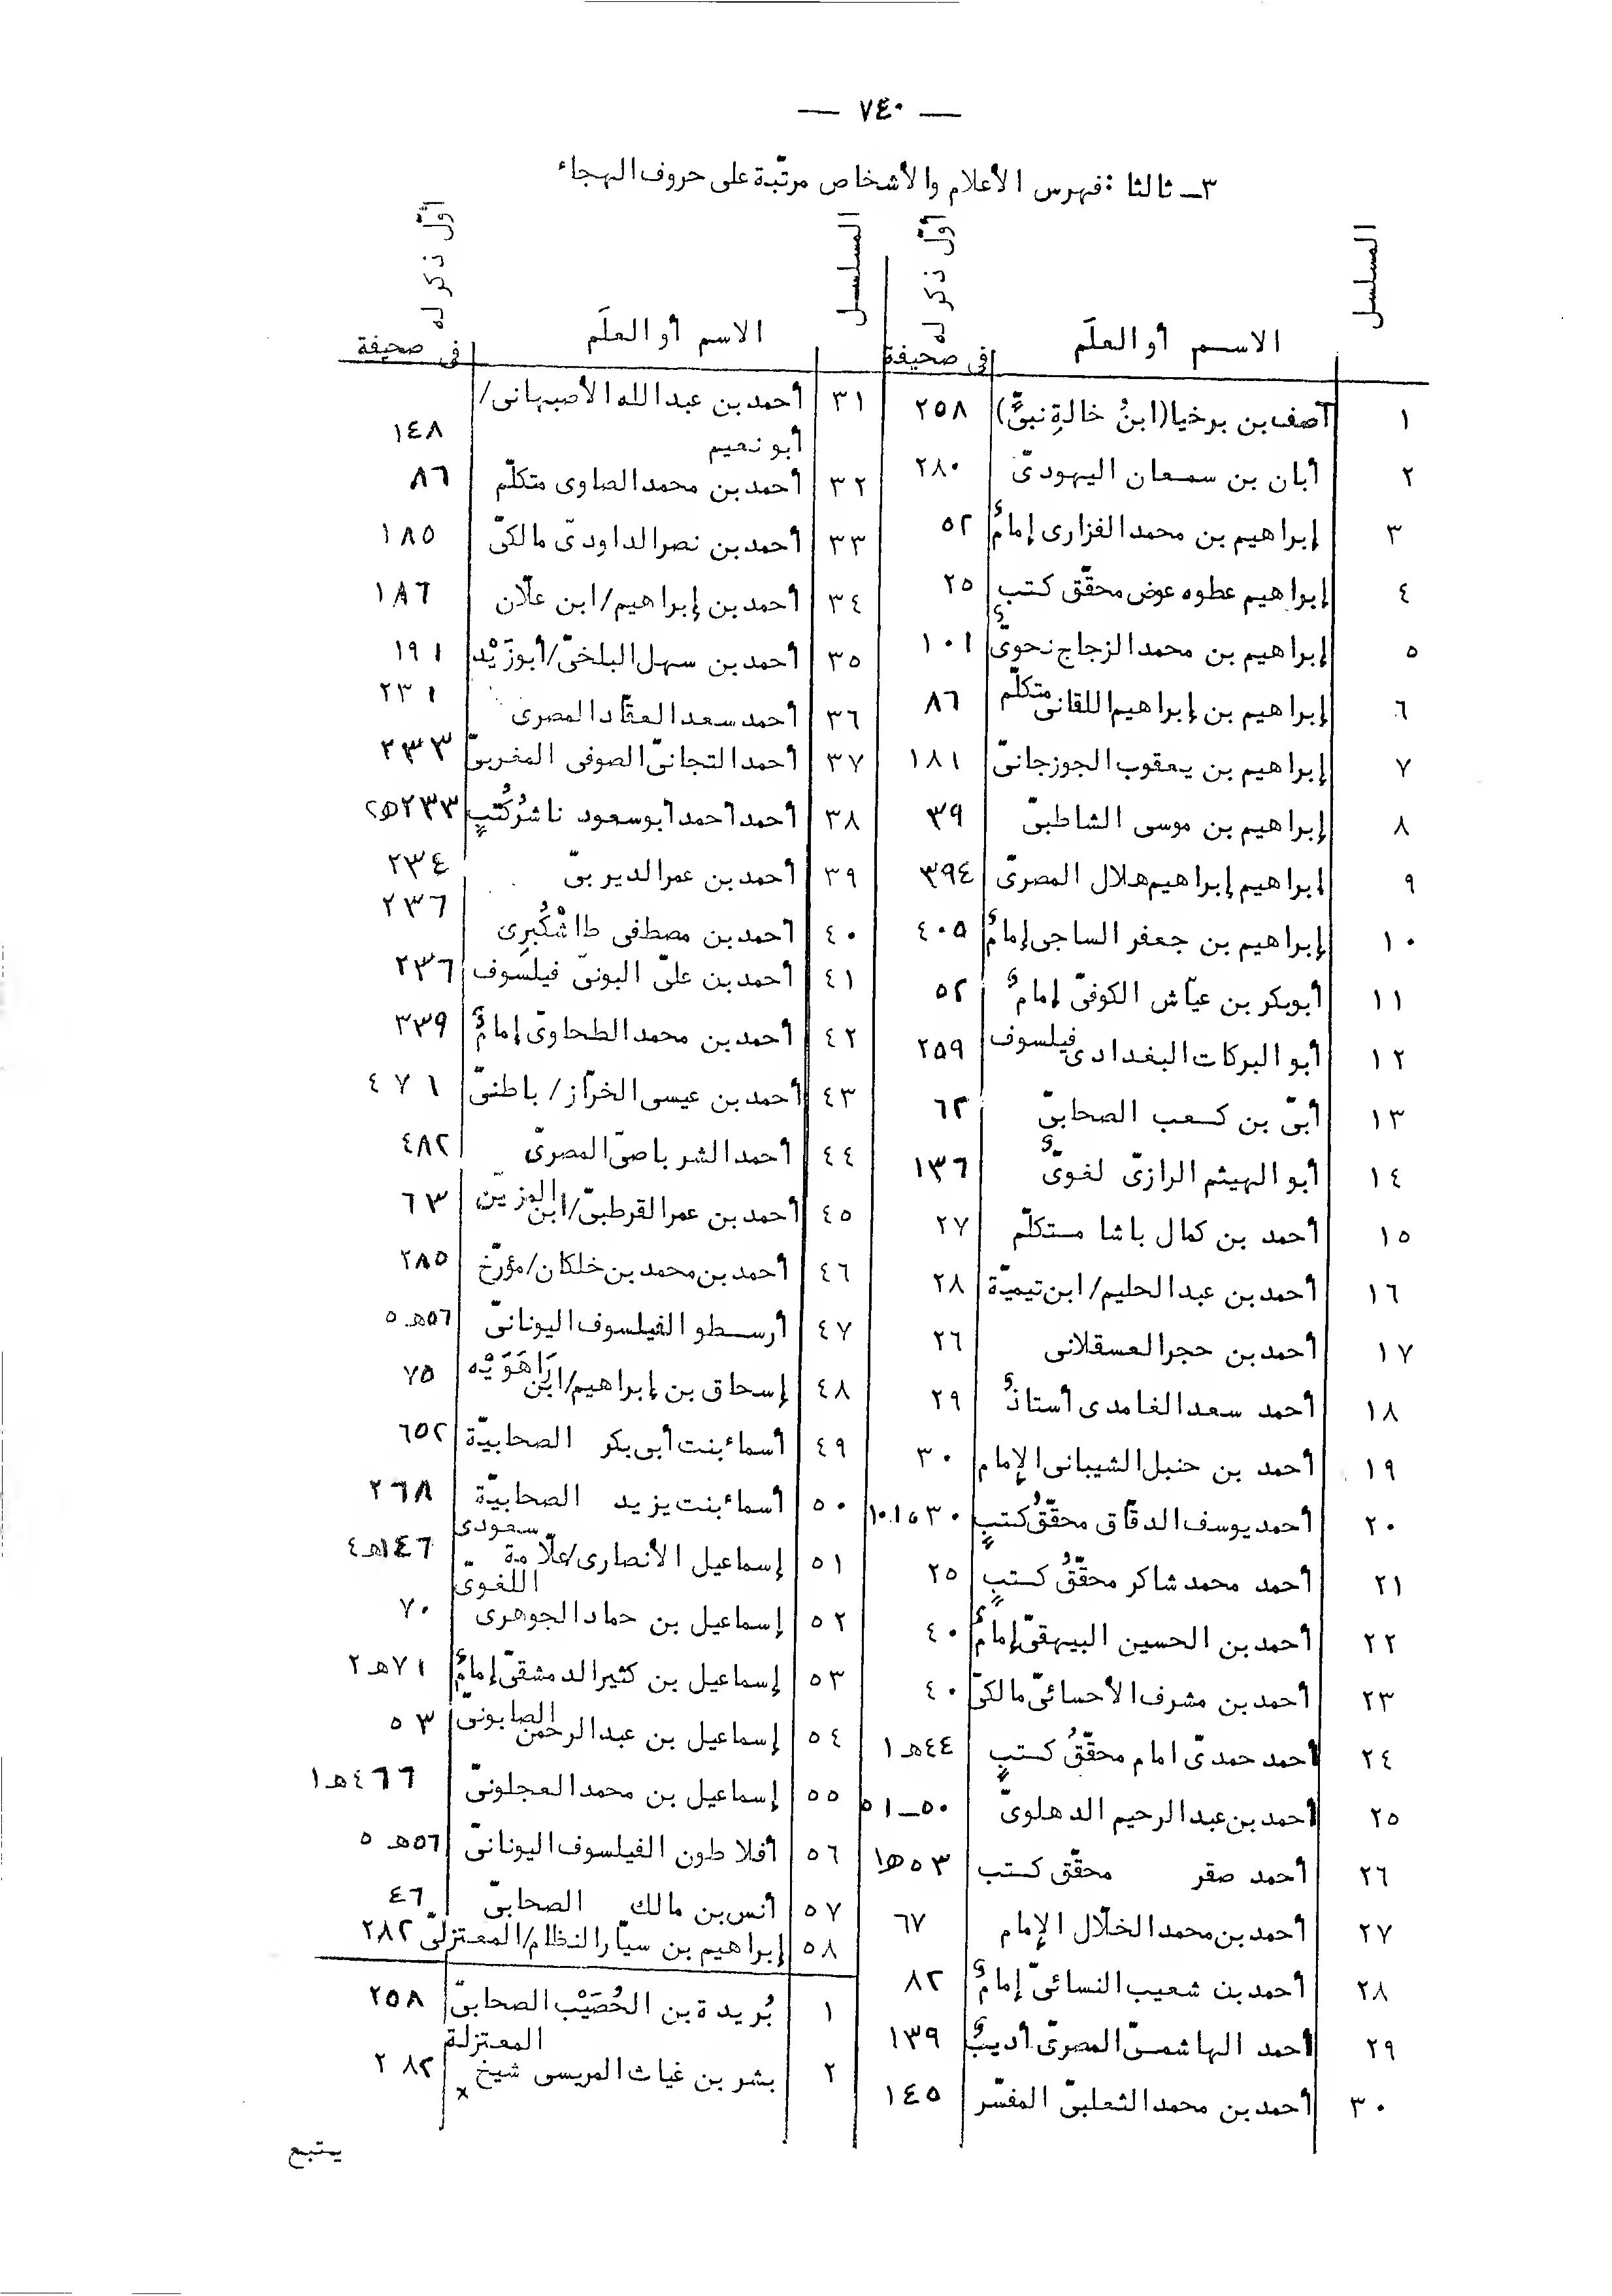 — ٧٤٠ —
٣ــ ثالثا : فهرس الأعلام والأشخاص مرتّبة على حروف الهجاء
المسلسل الاسم أو العلَم أوّل ذكر له فى صحيفة
١ آصف بن برخيا (ابنُ خالةِ نبىٍّ) ٢٥٨
٢ أبان بن سمعان اليهودىّ ٢٨٠
٣ إبراهيم بن محمد الفزارى إمامٌ ٥٢
٤ إبراهيم عطوه عوض محقّق كتب ٢٥
٥ إبراهيم بن محمد الزجاج نحوىٌّ ١٠١
٦ إبراهيم بن إبراهيم اللقانى متكلّم ٨٦
٧ إبراهيم بن يعقوب الجوزجانىّ ١٨١
٨ إبراهيم بن موسى الشاطبىّ ٣٩
٩ إبراهيم إبراهيم هلال المصرىّ ٣٩٤
١٠ إبراهيم بن جعفر الساجى إمامٌ ٤٠٥
١١ أبوبكر بن عيّاش الكوفىّ إمامٌ ٥٢
١٢ أبو البركات البغدادى فيلسوف ٢٥٩
١٣ أبىّ بن كعب الصحابىّ ٦٢
١٤ أبو الهيثم الرازىّ لغوىٌّ ١٣٦
١٥ أحمد بن كمال باشا متكلّم ٢٧
١٦ أحمد بن عبد الحليم/ ابن تيميّة ٢٨
١٧ أحمد بن حجر العسقلانى ٢٦
١٨ أحمد سعد الغامدى أستاذٌ ٢٩
١٩ أحمد بن حنبل الشيبانى الإمام ٣٠
٢٠ أحمد يوسف الدقّاق محقّقُ كتبٍ
٢١ أحمد محمد شاكر محقّقُ كتبٍ ٢٥
٢٢ أحمد بن الحسين البيهقىّ إمامٌ ٤٠
٢٣ أحمد بن مشرف الأحسائىّ مالكىّ ٤٠
٢٤ أحمد حمدىّ امام محقّقُ كتبٍ ٤٤هـ١
٢٥ أحمد بن عبد الرحيم الدهلوىّ ٥٠ــ٥١
٢٦ أحمد صقر محقّق كتب ٥٣هـ١
٢٧ أحمد بن محمد الخلّال الإمام ٦٧
٢٨ أحمد بن شعيب النسائىّ إمامٌ ٨٢
٢٩ أحمد الهاشمىّ المصرىّ أديبٌ ١٣٩
٣٠ أحمد بن محمد الثعلبىّ المفسّر ١٤٥
المسلسل الاسم أو العلَم أوّل ذكر له فى صحيفة
٣١ أحمد بن عبد الله الأصبهانى/
أبو نعيم ١٤٨
٣٢ أحمد بن محمد الصاوى متكلّم ٨٦
٣٣ أحمد بن نصر الداودىّ مالكىّ ١٨٥
٣٤ أحمد بن إبراهيم/ ابن علّان ١٨٦
٣٥ أحمد بن سهل البلخىّ/ أبوزَيْد ١٩١
٣٦ أحمد سعد العقّاد المصرى ٢٣١
٣٧ أحمد التجانىّ الصوفى المغربىّ ٢٣٣
٣٨ أحمد أحمد أبوسعود ناشرُ كُتبٍ ٢٣٣هـ٢
٣٩ أحمد بن عمر الديربىّ ٢٣٤
٤٠ أحمد بن مصطفى طاشْكُبرِى ٢٣٦
٤١ أحمد بن علىّ البونىّ فيلسوف ٢٣٦
٤٢ أحمد بن محمد الطحاوىّ إمامٌ ٣٣٩
٤٣ أحمد بن عيسى الخرّاز/ باطنىّ ٤٧١
٤٤ أحمد الشرباصىّ المصرىّ ٤٨٢
٤٥ أحمد بن عمر القرطبىّ/ ابن المزيّن ٦٣
٤٦ أحمد بن محمد بن خلكان/ مؤرّخ ٢٨٥
٤٧ أرسطو الفيلسوف اليونانىّ ٥٦هـ٥
٤٨ إسحاق بن إبراهيم/ ابن رَاهَوَيْه ٧٥
٤٩ أسماء بنت أبى بكر الصحابيّة ٦٥٢
٥٠ أسماء بنت يزيد الصحابيّة ٢٦٨
٥١ إسماعيل الأنصارى/ علّامة سعودى ١٤٦هـ٤
٥٢ إسماعيل بن حماد الجوهرى اللغوىّ ٧٠
٥٣ إسماعيل بن كثير الدمشقىّ إمامٌ ٧١هـ٢
٥٤ إسماعيل بن عبد الرحمن الصابونىّ ٥٣
٥٥ إسماعيل بن محمد العجلونىّ ٤٦٦هـ١
٥٦ أفلاطون الفيلسوف اليونانىّ ٥٦هـ٥
٥٧ أنس بن مالك الصحابىّ ٤٦
٥٨ إبراهيم بن سيّار النظّام/ المعتزلىّ ٢٨٢
١ بُريدة بن الحُصَيْب الصحابىّ ٢٥٨
٢ بشر بن غياث المريسى شيخ المعتزلة ٢٨٢
يتبع